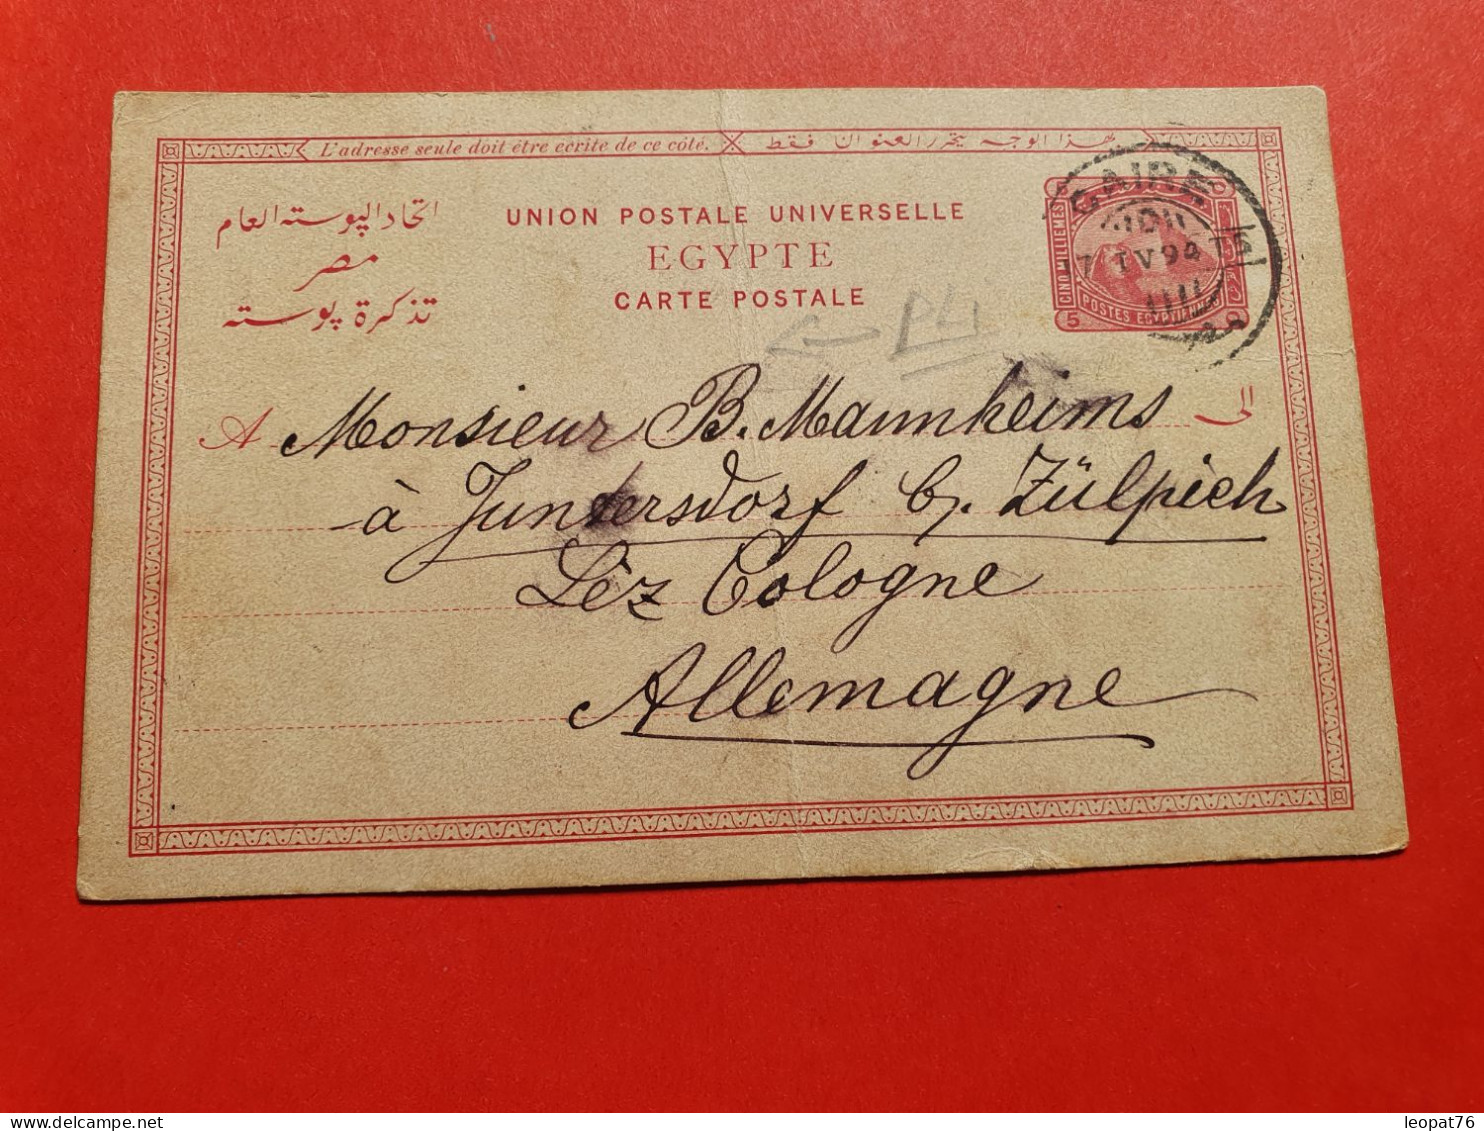 L'adresse seule doit être ecrite de ce côté. بهذا الوجه يتحرر العنوان فقط
اتحاد البوسته العام
مصر
تذكرة بوسته
UNION POSTALE UNIVERSELLE
EGYPTE
CARTE POSTALE
CINQ MILLIEMES
POSTES EGYPTIENNES
5
CAIRE
7 IV 94
A Monsieur B. Mannheims الى
à Juntersdorf b/. Zülpich
Léz Cologne
Allemagne
Pli
leopat76